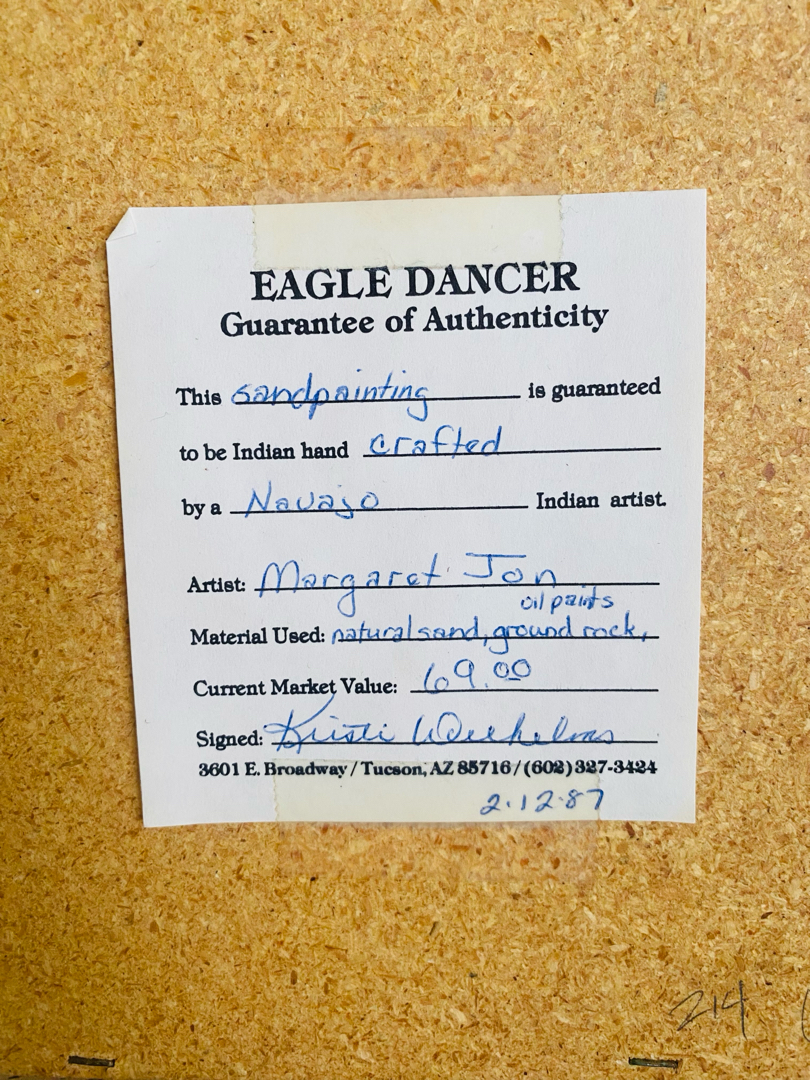 EAGLE DANCER
Guarantee of Authenticity
This sandpainting is guaranteed
to be Indian hand crafted
by a Navajo Indian artist.
Artist: Margaret Jon
oil paints
Material Used: natural sand, ground rock,
Current Market Value: 69.00
Signed: Kristi
3601 E. Broadway / Tucson, AZ 85716 / (602) 327-3424
2.12.87
214